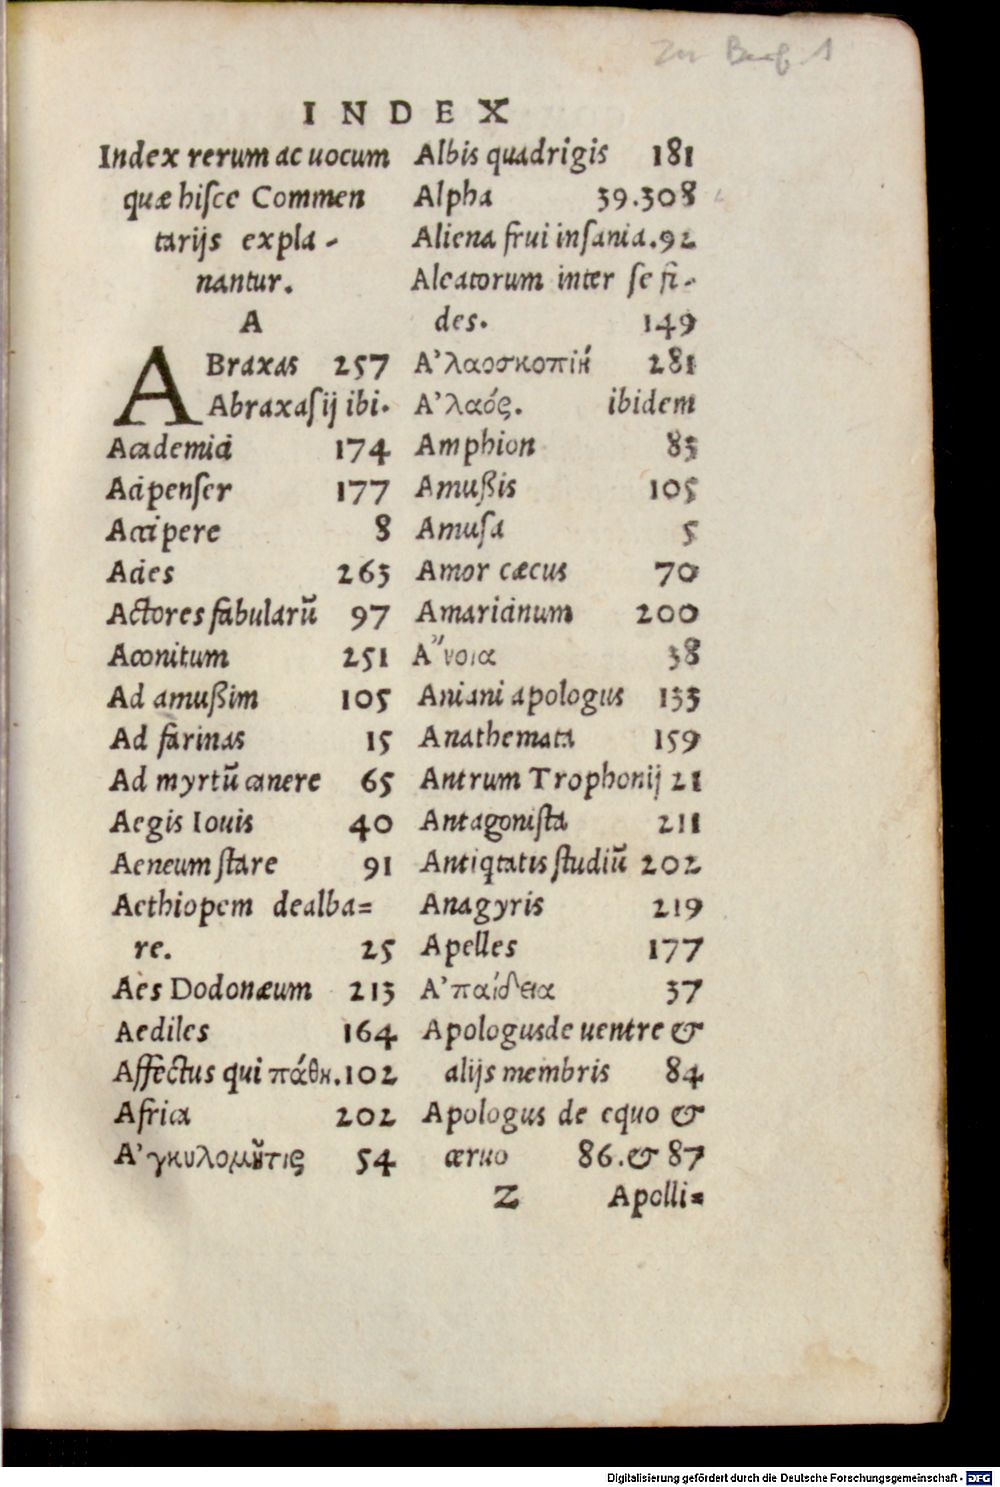 INDEX
Index rerum ac uocum
quæ hisce Commen
tarijs expla-
nantur.
A
ABraxas 257
Abraxasij ibi.
Academici 174
Acipenser 177
Accipere 8
Acies 263
Actores fabularū 97
Aconitum 251
Ad amußim 105
Ad farinas 15
Ad myrtū canere 65
Aegis Iouis 40
Aeneum stare 91
Aethiopem dealba=
re. 25
Aes Dodonæum 213
Aediles 164
Affectus qui πάθη. 102
Africa 202
Α᾽γκυλομήτις 54
Albis quadrigis 181
Alpha 39.308
Aliena frui insania. 92
Aleatorum inter se fi-
des. 149
Α᾽λαοσκοπιή 281
Α᾽λαός. ibidem
Amphion 83
Amußis 105
Amusa 5
Amor cæcus 70
Amaricinum 200
Α῎νοια 38
Aniani apologus 133
Anathemata 159
Antrum Trophonij 21
Antagonista 211
Antiqtatis studiū 202
Anagyris 219
Apelles 177
Α᾽παίδεια 37
Apologus de uentre &
alijs membris 84
Apologus de equo &
ceruo 86. & 87
Z Apolli=
Digitalisierung gefördert durch die Deutsche Forschungsgemeinschaft - DFG